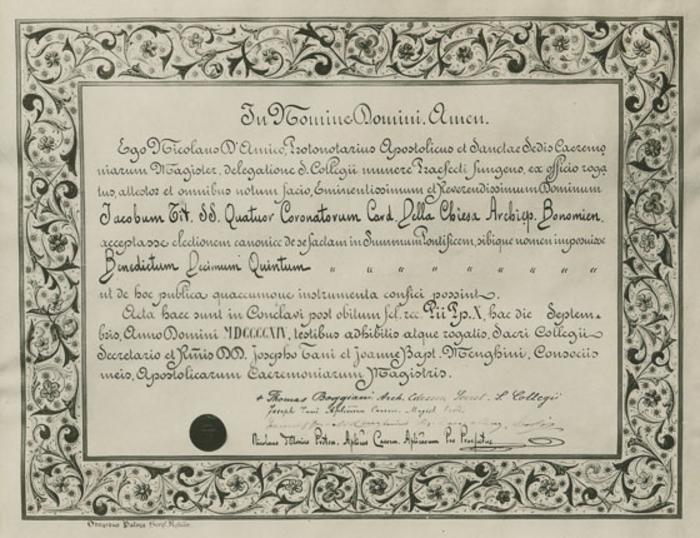 In Nomine Domini. Amen.
Ego Nicolaus D'Amico, Protonotarius Apostolicus et Sanctae Sedis Caeremo
niarum Magister, delegatione S. Collegii munere Praefecti fungens, ex officio roga
tus, attestor et omnibus notum facio, Eminentissimum et Reverendissimum Dominum
Jacobum Tit. SS. Quatuor Coronatorum Card. Della Chiesa Archiep. Bononien.
acceptasse electionem canonice de se factam in Summum Pontificem, sibique nomen imposuisse
Benedictum Decimum Quintum " " " " " " " "
ut de hoc publica quaecumque instrumenta confici possint.
Acta haec sunt in Conclavi post obitum fel. rec. Pii Pp. X, hac die Septem-
bris, Anno Domini MDCCCCXIV, testibus adhibitis atque rogatis, Sacri Collegii
Secretario et Rmis DD. Josepho Tani et Joanne Bapt. Menghini, Consociis
meis, Apostolicarum Caeremoniarum Magistris.
+ Thomas Boggiani Arch. Edessen Secret. S. Collegii
Joseph Tani
Nicolaus D'Amico Proton. Aplicus Caerem. Aplicarum Pro Praefectus